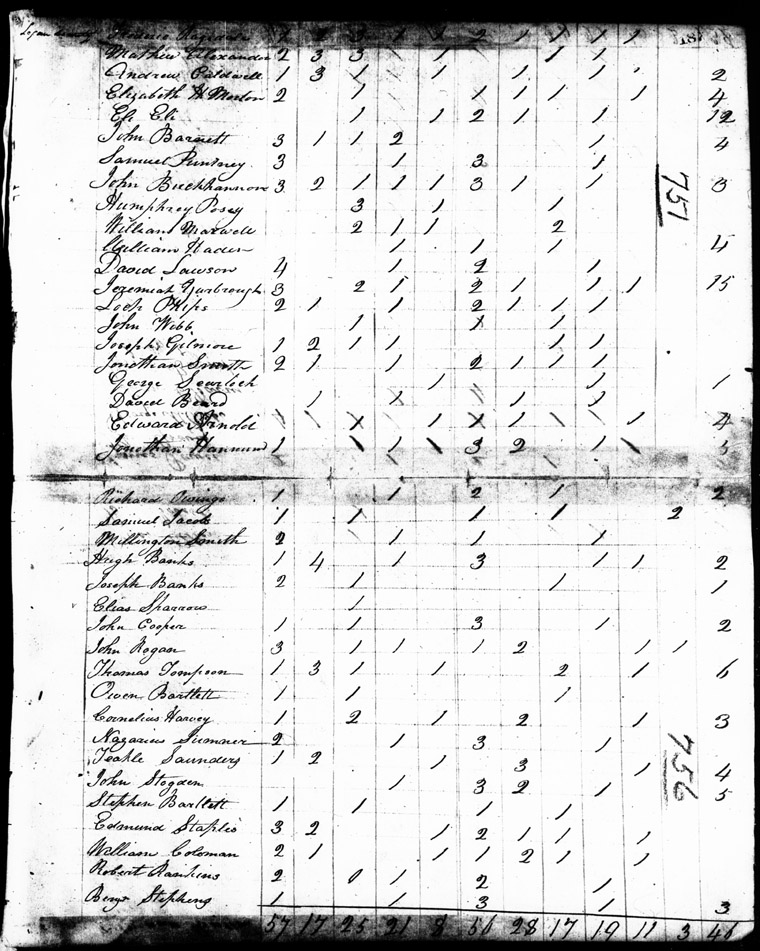 Logan County
Mathew Alexander 2 3 3 1 1 1 1
Andrew Caldwell 1 3 1 1 1 1 1 2
Elizabeth H Morton 2 1 1 1 1 1 4
Eli 1 1 2 1 1 12
John Barnett 3 1 1 2 1 4
Samuel 3 1 3 1
John Buckhannon 3 2 1 1 1 3 1 1 3
751
Humphrey Posey 3 1 1
William Maxwell 2 1 1 2
William Haden 1 1 1 4
David Lawson 4 1 2 1
Jeremiah Yarbrough 3 2 1 2 1 1 1 15
Phips 2 1 1 2 1 1 1
John Webb 1 1 1
Joseph Gilmore 1 2 1 1 1 1
Jonathan Smith 2 1 1 2 1 1 1
George 1 1 1
David Beard 1 1 1 1
Edward Arnold 4
Jonathan 1 1 1 1 3 2 1 1
Richard Owings 1 1 2 1 2
Samuel Jacob 1 1 1 1 2
Millington Smith 2 1 1 1
Hugh Banks 1 4 1 3 1 1 2
Joseph Banks 2 1 1 1
Elias Sparrow 1
John Cooper 1 1 3 1 2
John Rogan 3 1 1 1 2 1 1
Thomas Tompson 1 3 1 1 2 1 6
Owen Bartlett 1 1 1
Cornelius Harvey 1 2 1 2 1 3
Nazarius Sumner 2 1 3 1
756
Teakle Saunders 1 2 1 3 1 4
John Stogden 1 3 2 1 5
Stephen Bartlett 1 1 1 1
Edmund Staples 3 2 1 2 1 1 1
William Coloman 2 1 1 1 2 1 1
Robert Rankins 2 1 1 2 1
Benj Stephens 1 1 3 1 3
57 17 25 21 8 56 28 17 19 11 3 46